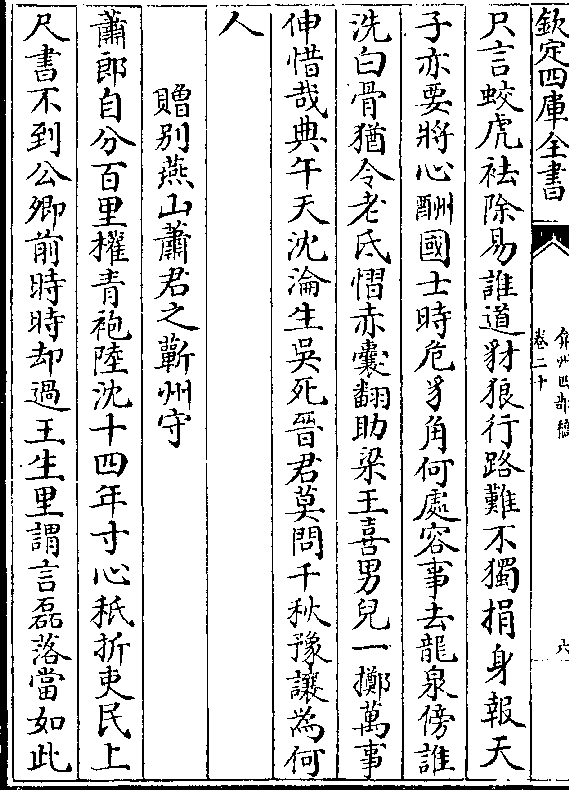 欽定四庫全書
弇州四部稿
卷二十
六
只言蛟虎袪除易誰道豺狼行路難不獨捐身報天
子亦要將心酬國士時危豸角何處容事去龍泉傍誰
洗白骨猶令老氐慴赤囊翻助梁王喜男兒一擲萬事
伸惜哉典午天沈淪生吳死晉君莫問千秋豫讓為何
人
贈别燕山蕭君之蘄州守
蕭郎自分百里擢青袍陸沈十四年寸心秖折吏民上
尺書不到公卿前時時却過王生里謂言磊落當如此